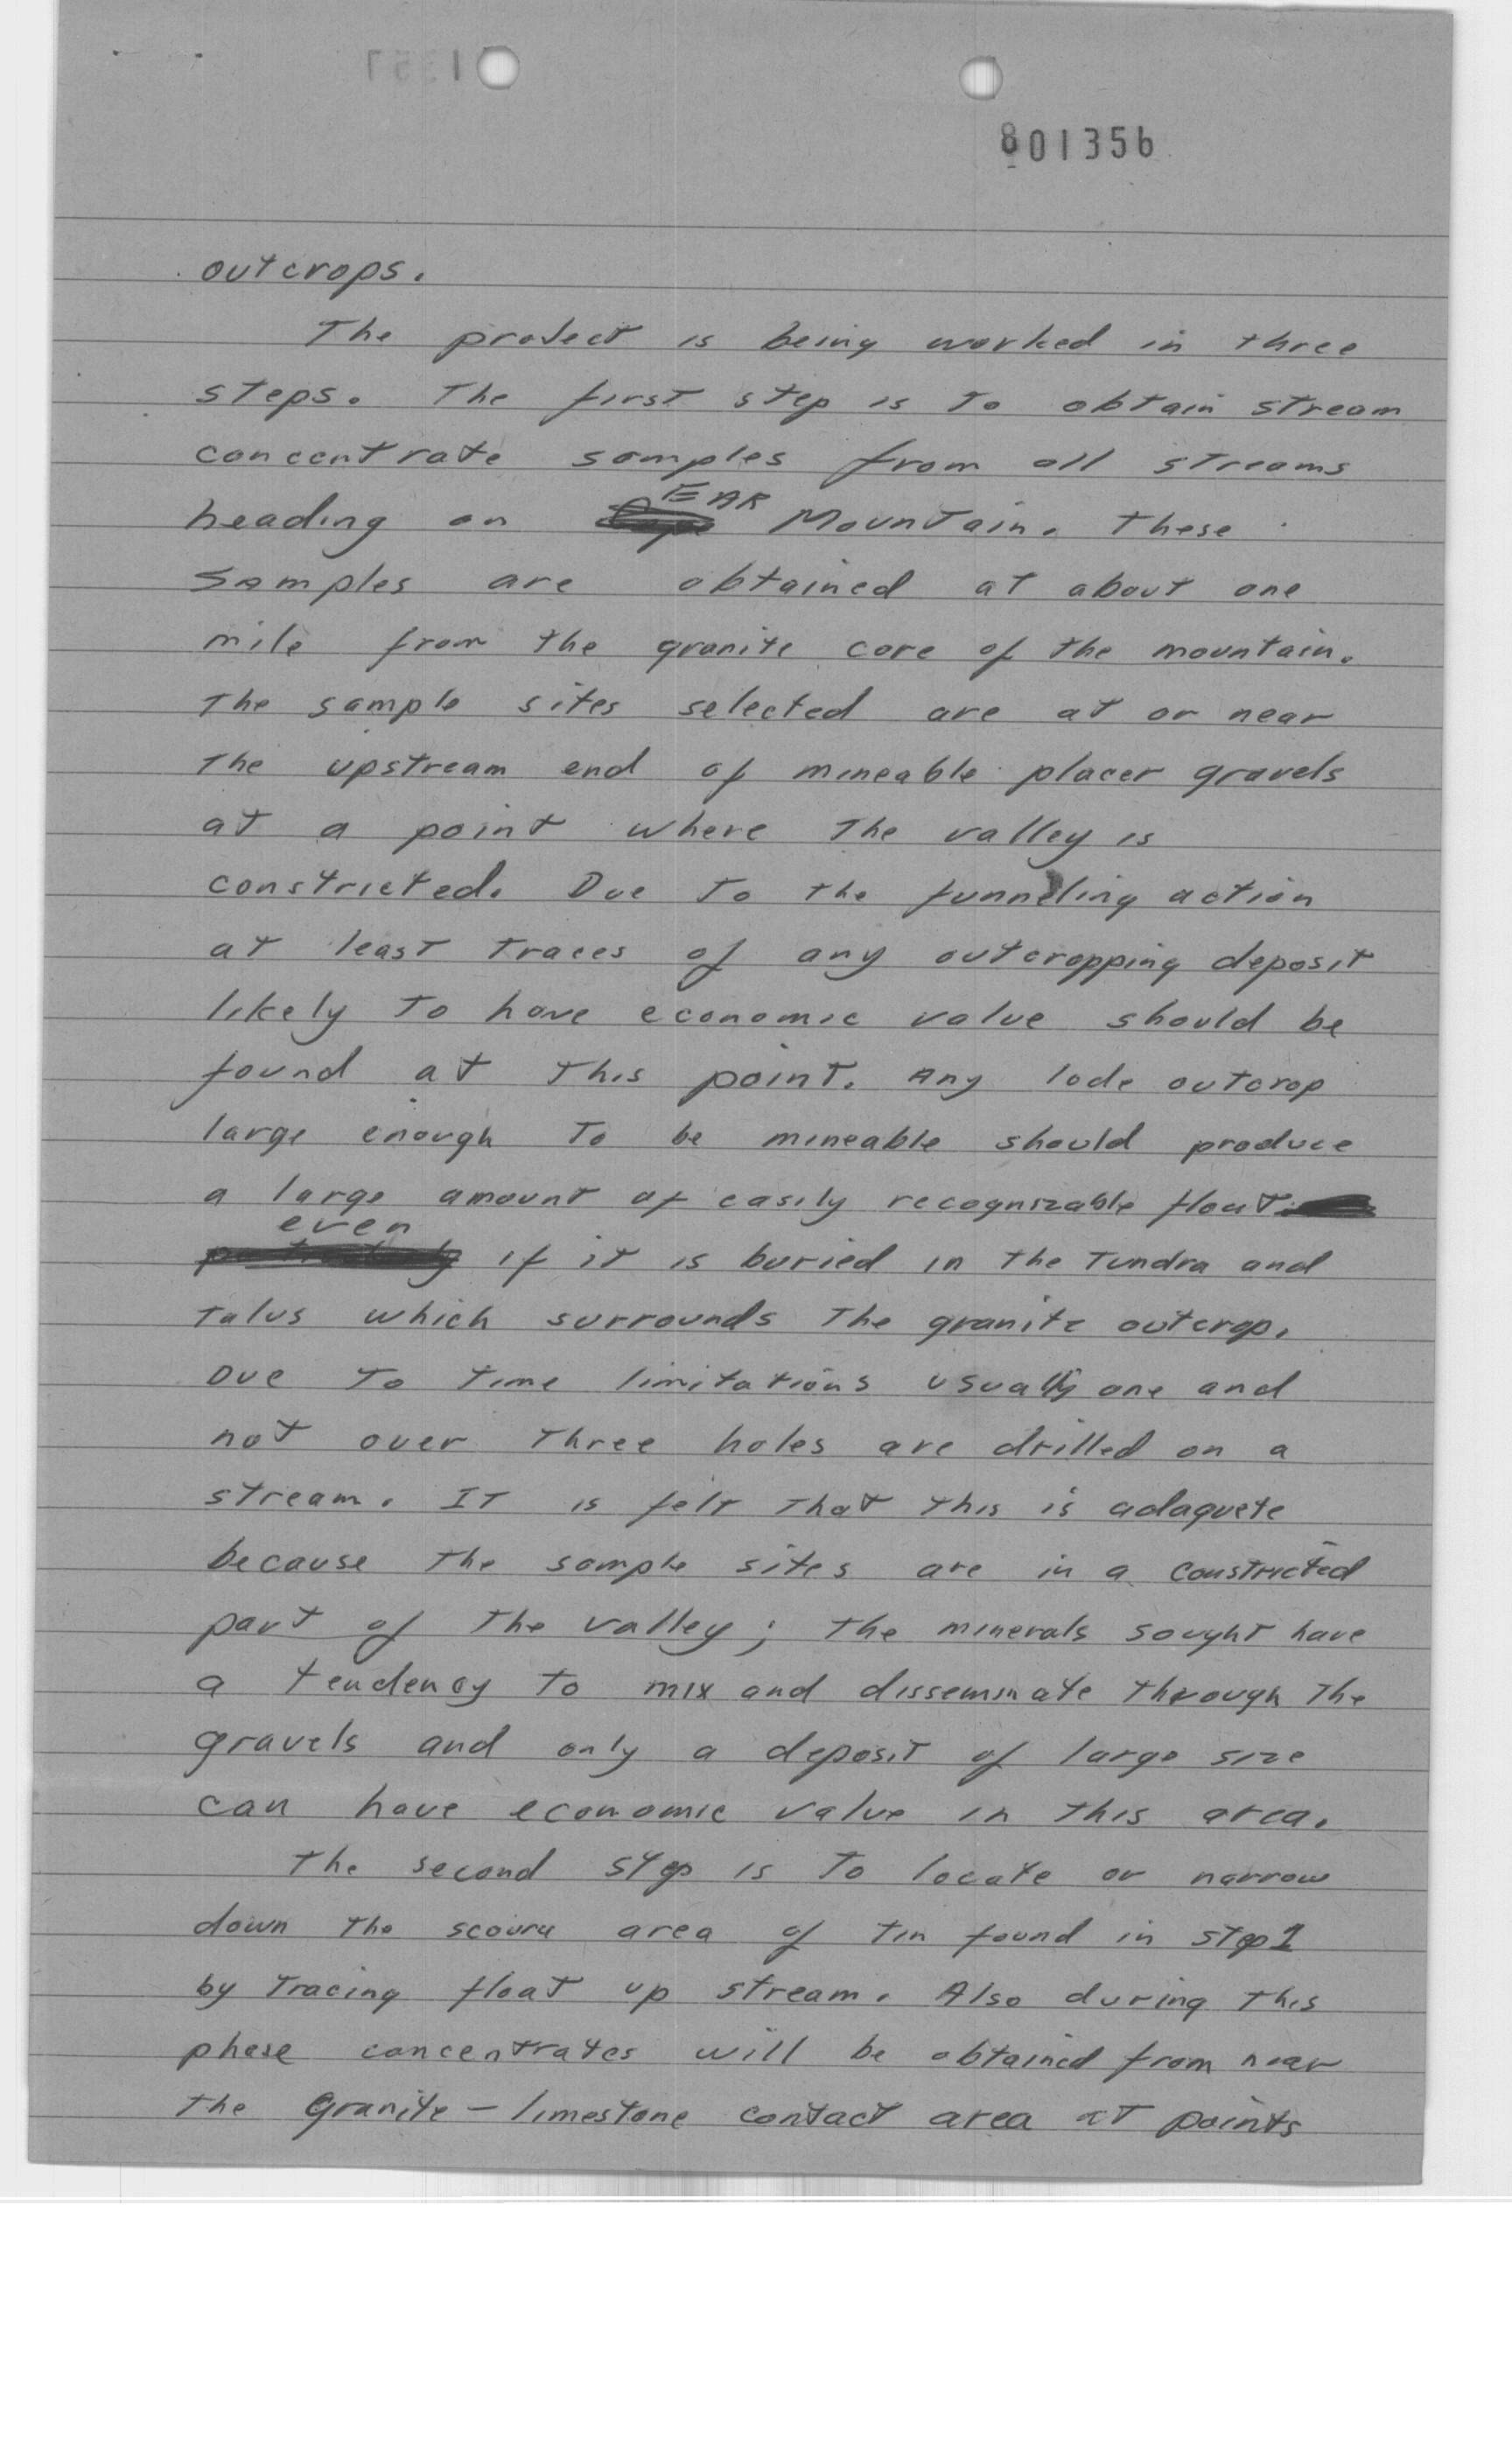 801356
outcrops.
The project is being worked in three
steps. The first step is to obtain stream
concentrate samples from all streams
heading on EAR Mountain. These
samples are obtained at about one
mile from the granite core of the mountain.
The sample sites selected are at or near
the upstream end of mineable placer gravels
at a point where the valley is
constricted. Due to the funneling action
at least traces of any outcropping deposit
likely to have economic value should be
found at this point. Any lode outcrop
large enough to be mineable should produce
a large amount of easily recognizable float
even if it is buried in the tundra and
talus which surrounds the granite outcrop.
Due to time limitations usually one and
not over three holes are drilled on a
stream. It is felt that this is adaquete
because the sample sites are in a constricted
part of the valley; the minerals sought have
a tendency to mix and disseminate through the
gravels and only a deposit of large size
can have economic value in this area.
The second step is to locate or narrow
down the scource area of tin found in step 1
by tracing float up stream. Also during this
phase concentrates will be obtained from near
the granite - limestone contact area at points